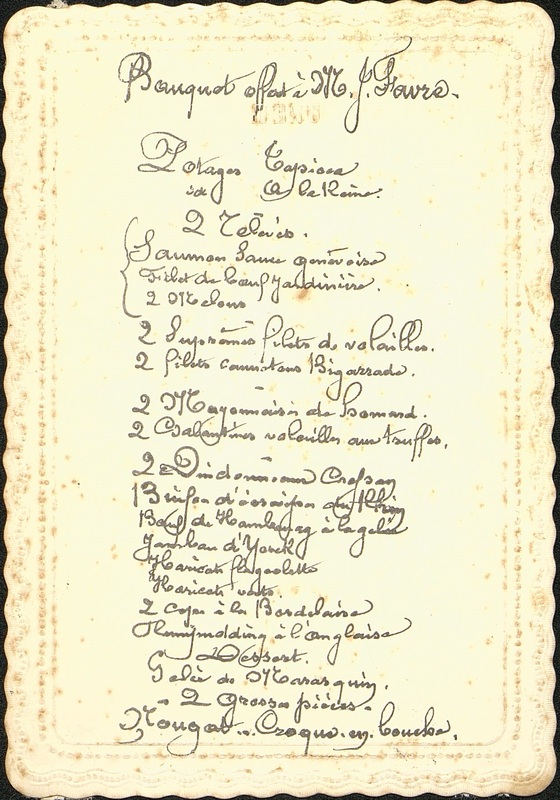 Banquet offert à M. J. Favre.
Potages Tapioca
id à la Reine.
2 Relevés.
Saumon Sauce genévoise
Filet de bœuf Jardinière.
2 Melons
2 Suprêmes filets de volailles.
2 filets cannetons Bigarrade.
2 Mayonnaises de Homard.
2 Galantines volailles aux truffes.
2 Dindonneaux Cresson
d'écrevisses du Rhin
Bœuf de Hambourg à la gelée
Jambon d'Yorck
Haricots flageolets
Haricots verts
2 Ceps à la Bordelaise
Plumpudding à l'anglaise
Dessert.
Gelée de Marasquin.
2 Grosses pièces.
Nougat. Croque en bouche.